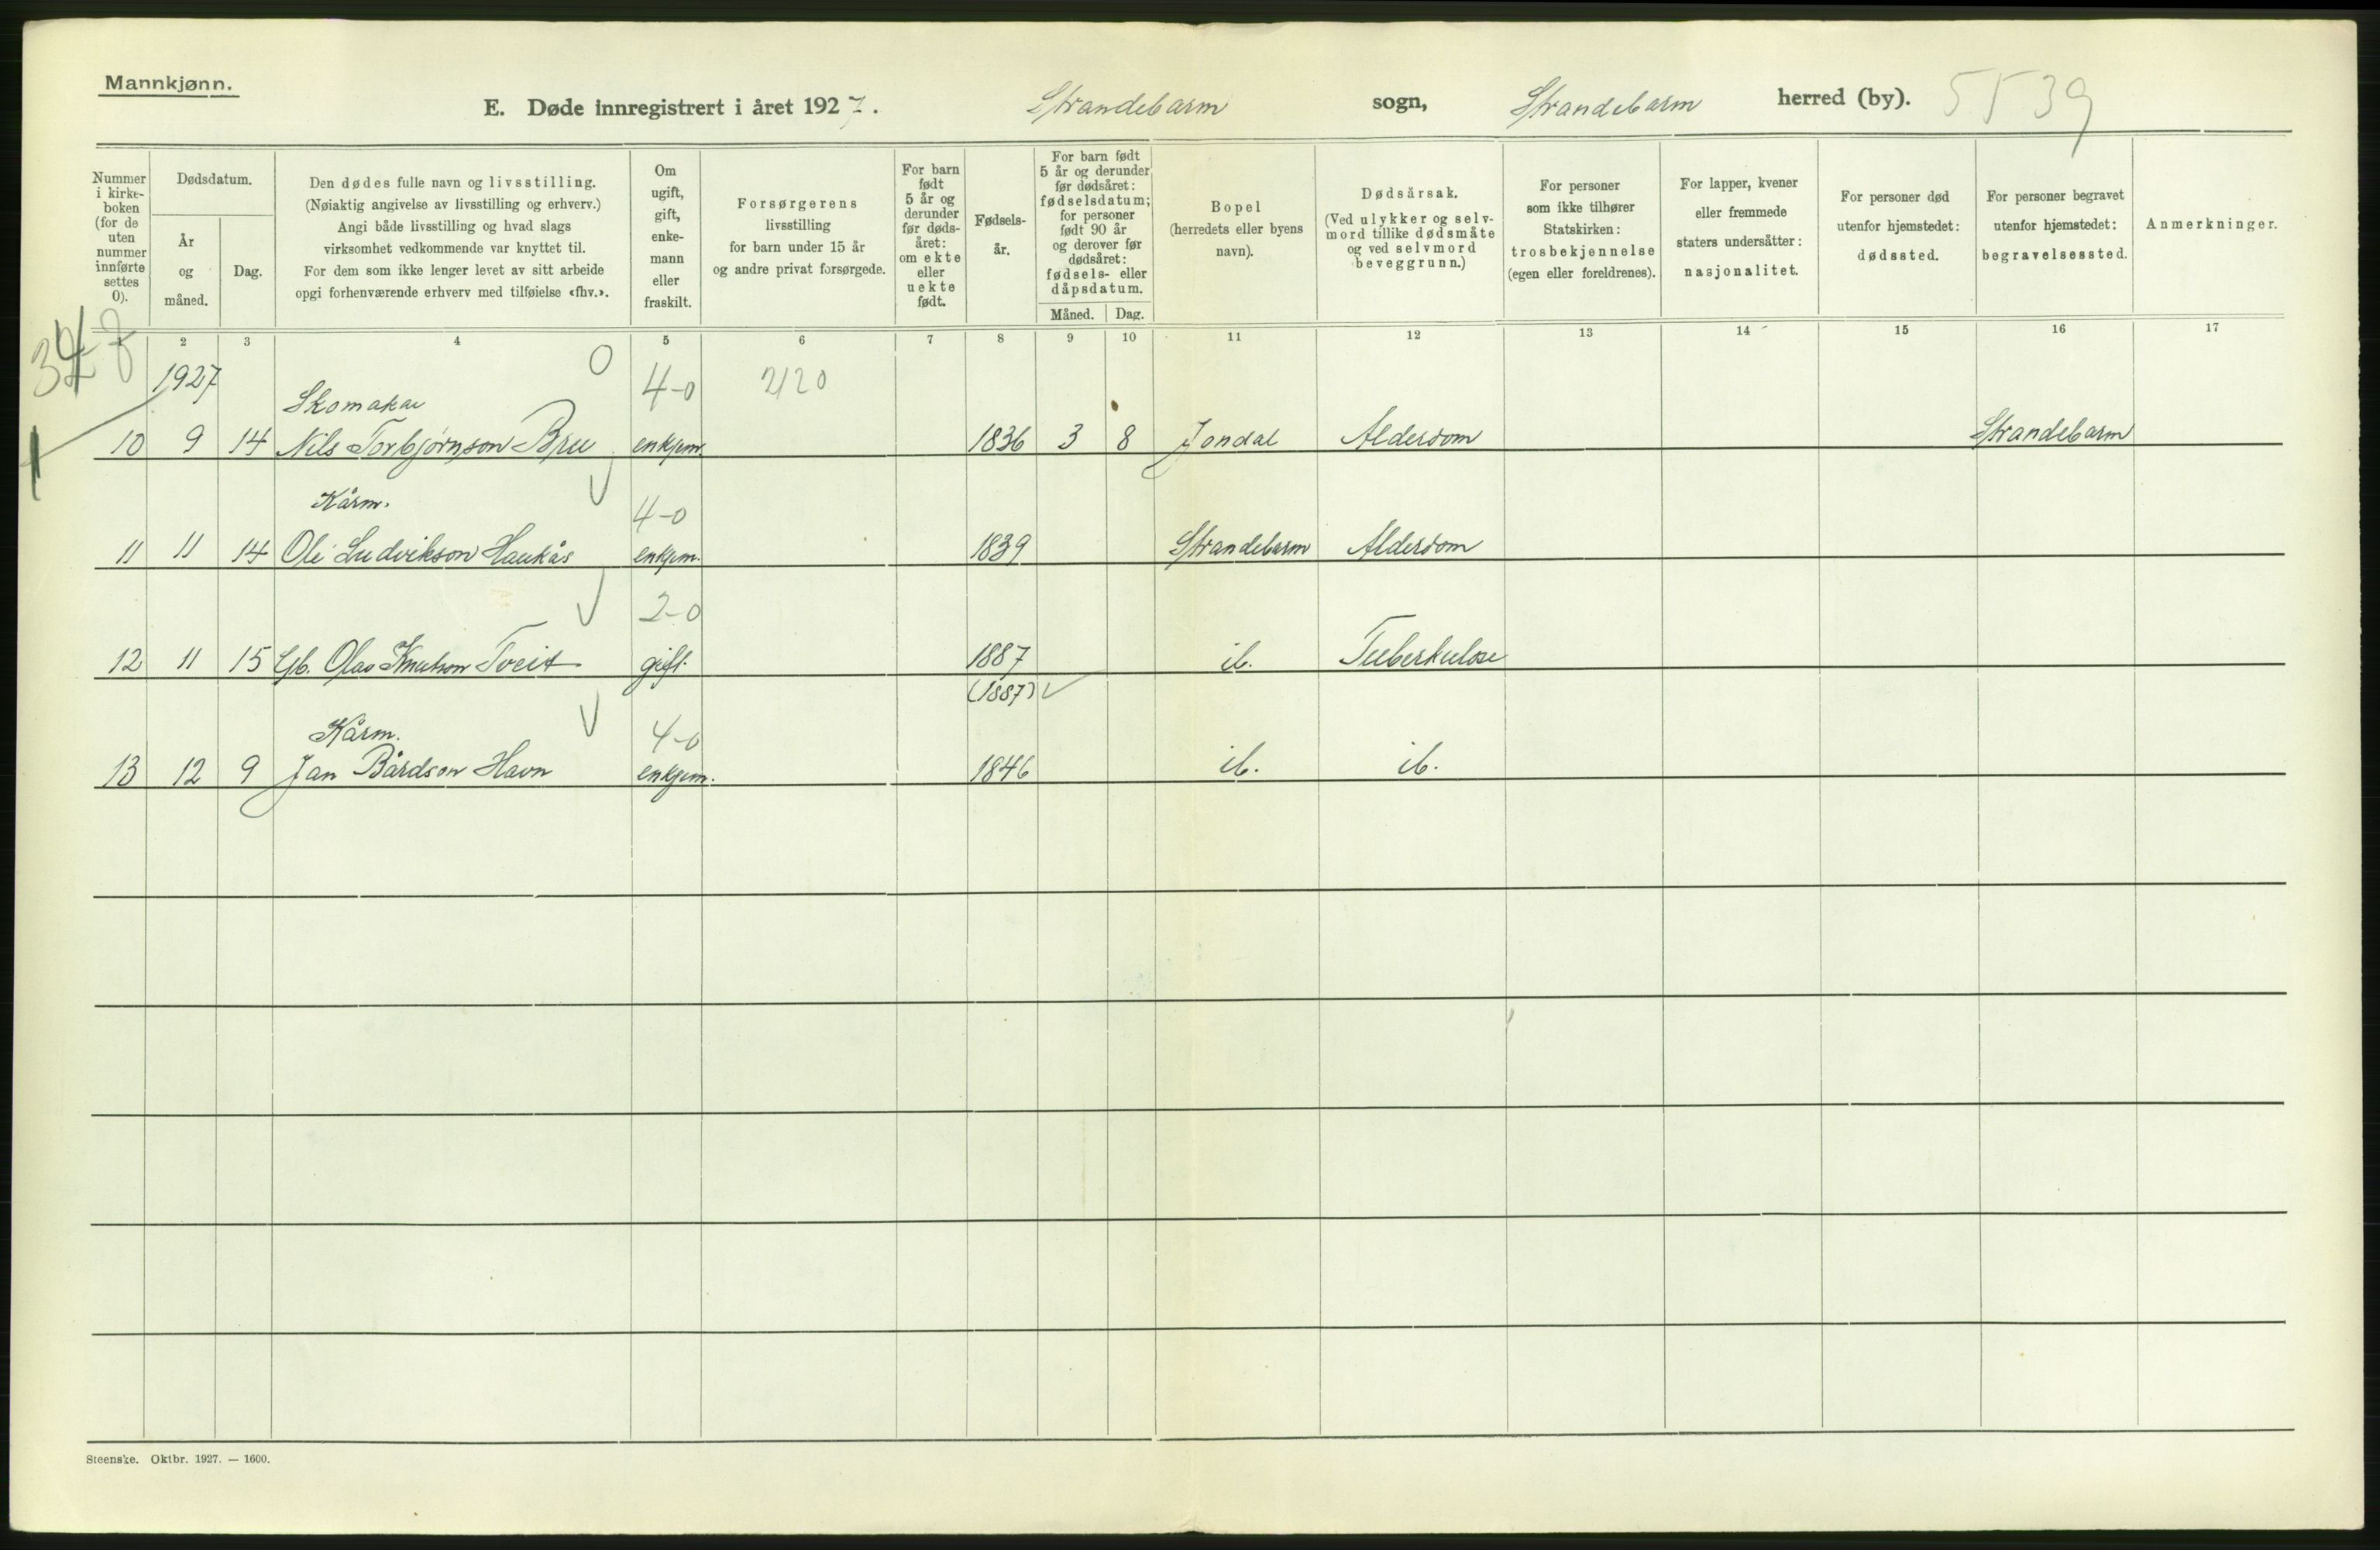 Mannkjønn.
E. Døde innregistrert i året 1927. Strandebarm sogn, Strandebarm herred (by). 5539
Nummer i kirke-boken (for de uten nummer innførte settes 0).
Dødsdatum.
År og måned.
Dag.
Den dødes fulle navn og livsstilling.
(Nøiaktig angivelse av livsstilling og erhverv.)
Angi både livsstilling og hvad slags
virksomhet vedkommende var knyttet til.
For dem som ikke lenger levet av sitt arbeide
opgi forhenværende erhverv med tilføielse «fhv.».
Om ugift, gift, enke-mann eller fraskilt.
Forsørgerens
livsstilling
for barn under 15 år
og andre privat forsørgede.
For barn født 5 år og derunder før døds-året: om ekte eller uekte født.
Fødsels-år.
For barn født 5 år og derunder før dødsåret: fødselsdatum; for personer født 90 år og derover før dødsåret: fødsels- eller dåpsdatum.
Måned. Dag.
Bopel
(herredets eller byens
navn).
Dødsårsak.
(Ved ulykker og selv-
mord tillike dødsmåte
og ved selvmord
beveggrunn.)
For personer
som ikke tilhører
Statskirken:
trosbekjennelse
(egen eller foreldrenes).
For lapper, kvener
eller fremmede
staters undersåtter:
nasjonalitet.
For personer død
utenfor hjemstedet:
dødssted.
For personer begravet
utenfor hjemstedet:
begravelsessted.
Anmerkninger.
2 3 4 5 6 7 8 9 10 11 12 13 14 15 16 17
1927 0 4-0 2120
Skomakar
10 9 14 Nils Torbjørnson Bru enkjem. 1836 3 8 Jondal Alderdom Strandebarm
Kårm. 4-0
11 11 14 Ole Ludvikson Haukås enkjem. 1839 Strandebarm Alderdom
2-0
12 11 15 Gb. Olav Knutson Tveit gift. 1887 ib. Tuberkulose
(1887)
Kårm. 4-0
13 12 9 Jan Bårdson Havn enkjem. 1846 ib. ib.
Steenske. Oktbr. 1927. — 1600.